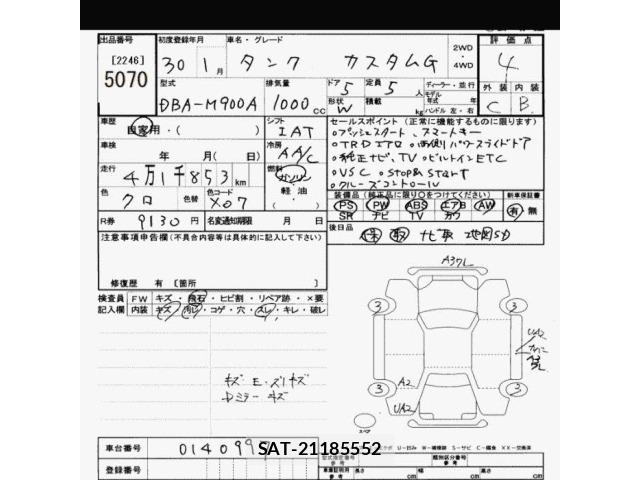 出品番号 初度登録年月 車名・グレード 2WD ・ 4WD 評価点
[2246] 5070 30 1月 タンク カスタムG 4
型式 排気量 ドア 定員 ディーラー・並行 外装 内装
DBA-M900A 1000cc 5 5人 モデル 年式 年
形状 W 積載 kg ハンドル 左・右 C B
車歴 自家用・( ) シフト IAT セールスポイント (正常に機能するものに限ります)
○プッシュスタート、スマートキー
車検 年 月(日) 冷房 AA/C ○TRDエアロ ○両側パワースライドドア
○純正ナビ、TV ○ビルトインETC
走行 4万1千853km 燃料 ガソリン 軽油 ・ ( ) ○VSC ○Stop&Start
○クルーズコントロール
色 クロ 色替 色コード X07 装備品 (純正品に限り○をつけてください) 新車保証書
PS PW ABS エアB AW 有・無
SR ナビ TV カワ
R券 9130円 名変通知期限 月 日 後日品 保 取 ナビ取 地図SD
注意事項申告欄(不具合内容等は具体的に記入して下さい)
修復歴 有 [箇所
検査員 FW キズ・飛石・ヒビ割・リペア跡・×要
記入欄 内装 キズ・汚レ・コゲ・穴・スレ・キレ・破レ
3 3
A2
3 3
UA2
キズ・E・スリキズ
Dミラーキズ
スペア
車台番号 0140995
SAT-21185552
登録番号
型式指定番号 類別区分番号
長さ cm 幅 cm 高さ cm